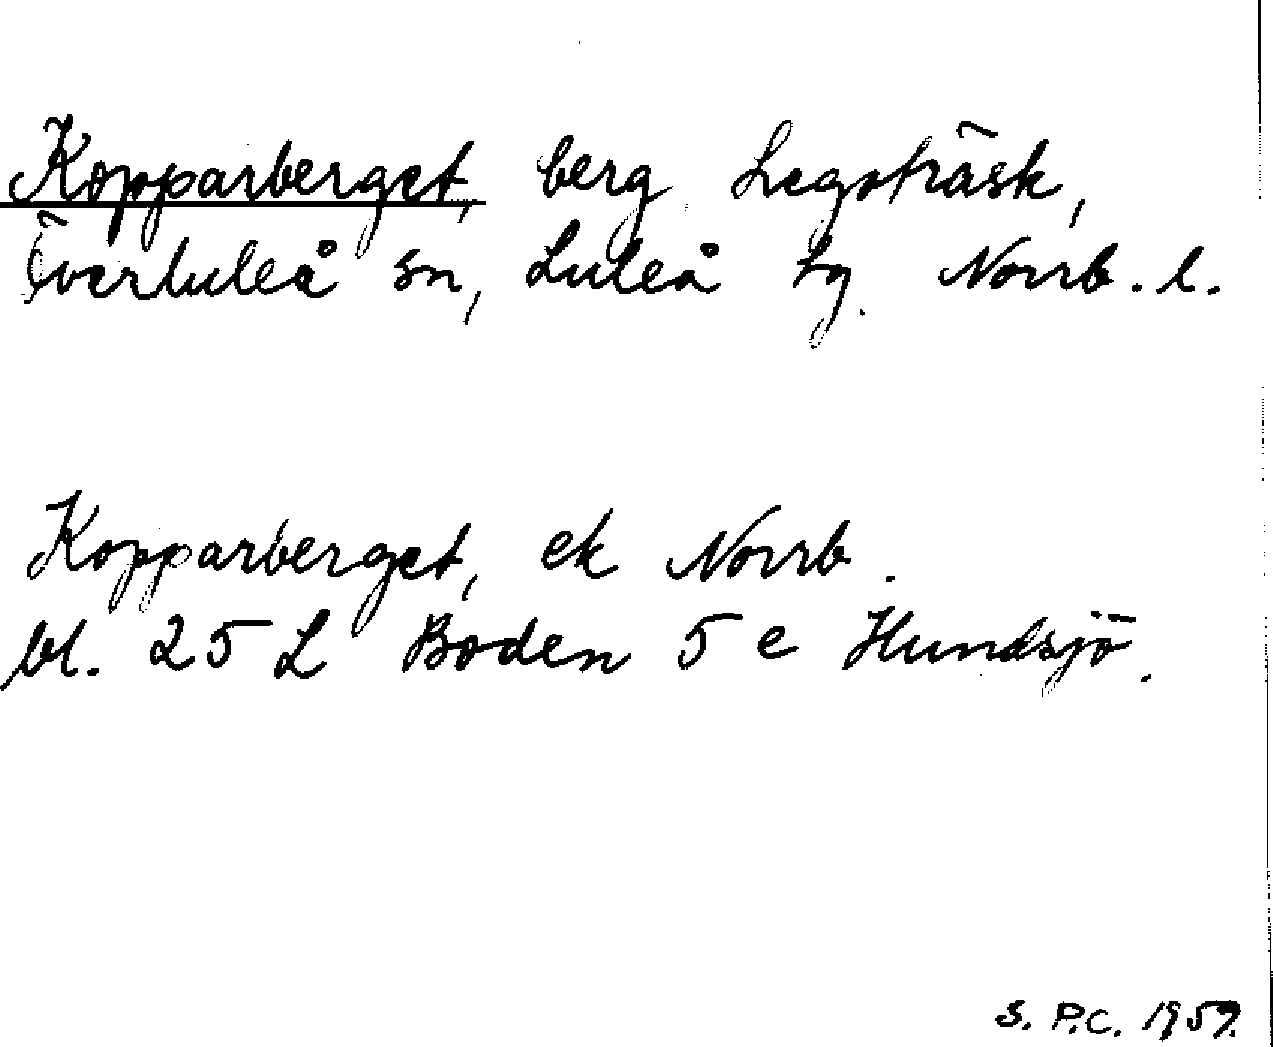 Kopparberget, berg Legoträsk,
Överluleå sn, Luleå tg. Norrb. l.
Kopparberget, ek Norrb.
bl. 25 L Boden 5 e Hundsjö.
S. P.C. 1959.